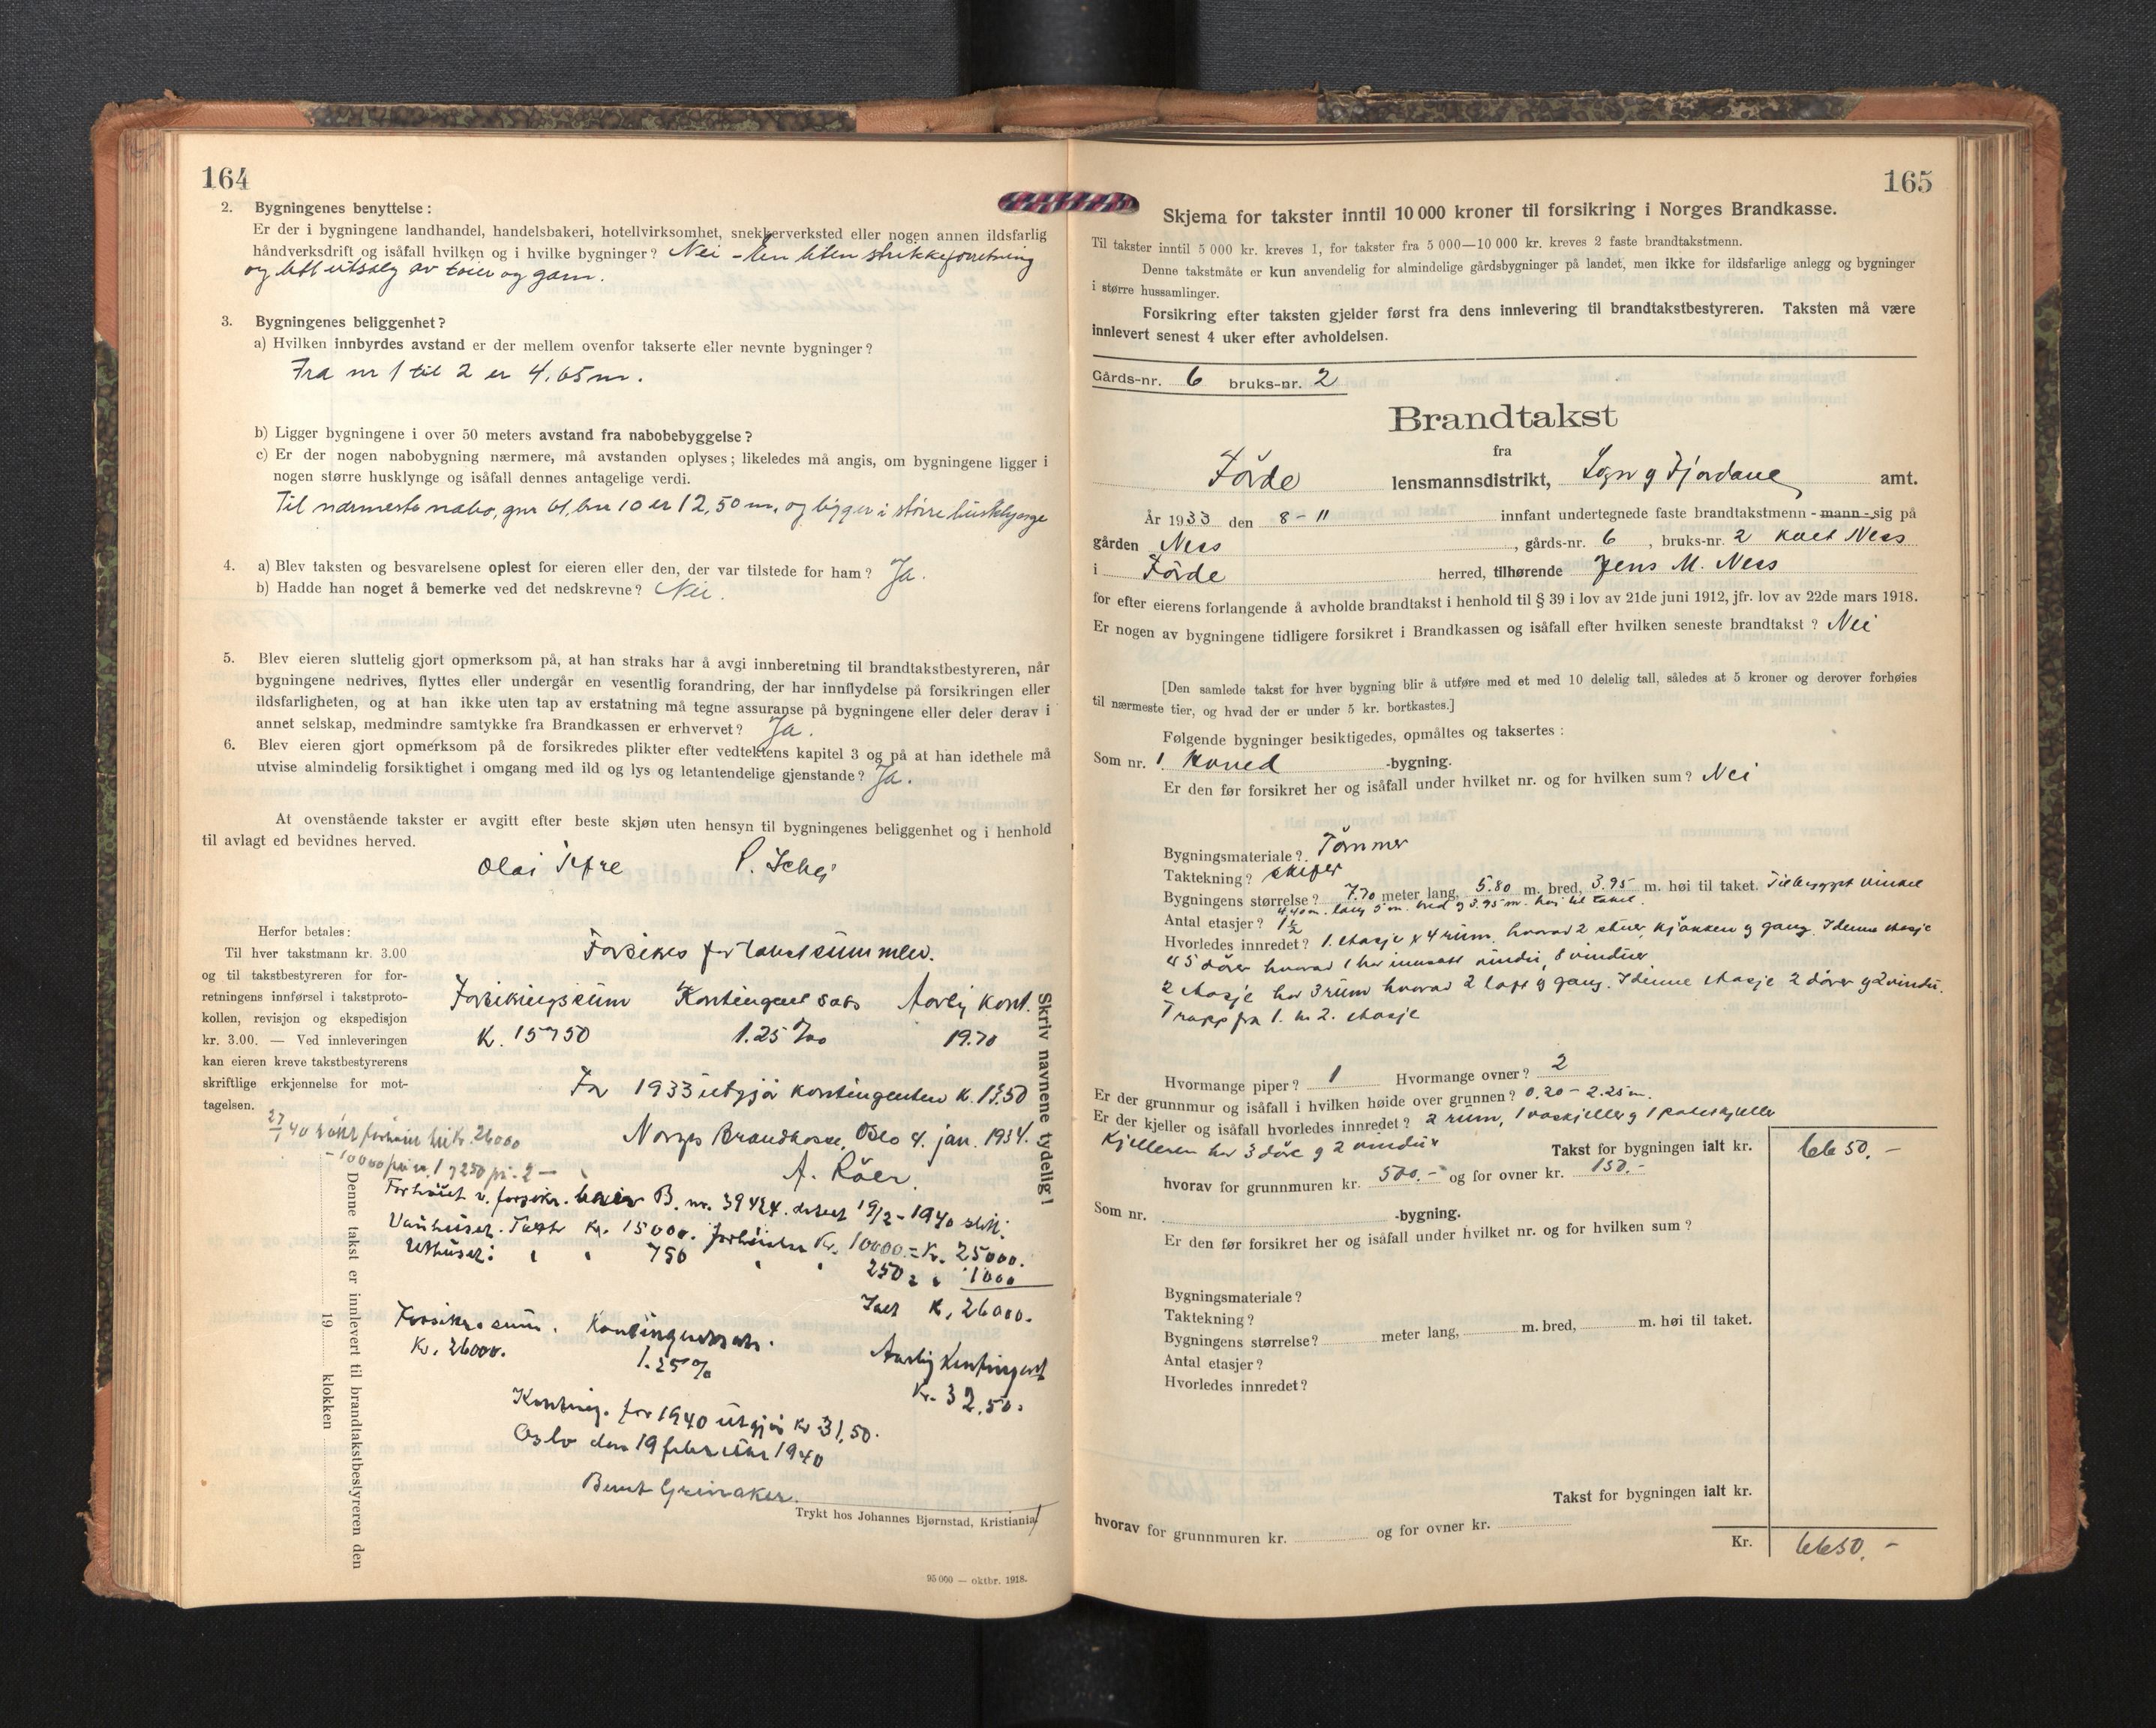 164
2. Bygningenes benyttelse:
Er der i bygningene landhandel, handelsbakeri, hotellvirksomhet, snekkerverksted eller nogen annen ildsfarlig
håndverksdrift og isåfall hvilken og i hvilke bygninger? Nei - en liten strikkeforretning
og litt utsalg av toier og garn.
3. Bygningenes beliggenhet?
a) Hvilken innbyrdes avstand er der mellem ovenfor takserte eller nevnte bygninger?
Fra nr 1 til 2 er 4.65 m.
b) Ligger bygningene i over 50 meters avstand fra nabobebyggelse?
c) Er der nogen nabobygning nærmere, må avstanden oplyses; likeledes må angis, om bygningene ligger i
nogen større husklynge og isåfall dennes antagelige verdi.
Til nærmeste nabo, gnr 61, bnr 10 er 12,50 m, og ligger i större husklynge
4. a) Blev taksten og besvarelsene oplest for eieren eller den, der var tilstede for ham? Ja.
b) Hadde han noget å bemerke ved det nedskrevne? Nei.
5. Blev eieren sluttelig gjort opmerksom på, at han straks har å avgi innberetning til brandtakstbestyreren, når
bygningene nedrives, flyttes eller undergår en vesentlig forandring, der har innflydelse på forsikringen eller
ildsfarligheten, og at han ikke uten tap av erstatning må tegne assuranse på bygningene eller deler derav i
annet selskap, medmindre samtykke fra Brandkassen er erhvervet? Ja.
6. Blev eieren gjort opmerksom på de forsikredes plikter efter vedtektens kapitel 3 og på at han idethele må
utvise almindelig forsiktighet i omgang med ild og lys og letantendelige gjenstande? Ja.
At ovenstående takster er avgitt efter beste skjøn uten hensyn til bygningenes beliggenhet og i henhold
til avlagt ed bevidnes herved.
Olai P. Schei
Herfor betales:
Til hver takstmann kr. 3.00
og til takstbestyreren for for-
retningens innførsel i takstproto-
kollen, revisjon og ekspedisjon
kr. 3.00. — Ved innleveringen
kan eieren kreve takstbestyrerens
skriftlige erkjennelse for mot-
tagelsen.
Forsikres for takstsummen.
Forsikringssum Kontingentsats Aarlig kont.
K. 15750 1.25 ‰ 19.70
For 1933 utgjør kontingenten K.
Norges Brandkasse, Oslo 4. jan. 1934.
A. Röer.
27/1 40 forhøiet til kr. 26000
10000 på nr. 1 og 250 på 2 —
Forhöiet v. forsikr. bevis B. nr. 39424. datert 19/2 - 1940
Vaanhuset. Takst Kr. 15000. forhöielse Kr. 10000. = Kr. 25000.
Uthuset: " " 750 " " 250 = " 1000
Ialt K. 26000.
Forsikr. sum. Kontingentsats. Aarlig Kontingent
Kr. 26000. 1.25 ‰ Kr. 32.50.
Konting. for 1940 utgjör kr 31,50.
Oslo den 19 februar 1940
Bernt Grinaker.
Skriv navnene tydelig!
Denne takst er innlevert til brandtakstbestyreren den
19 klokken
Trykt hos Johannes Bjørnstad, Kristiania
95 000 — oktbr. 1918.
165
Skjema for takster inntil 10 000 kroner til forsikring i Norges Brandkasse.
Til takster inntil 5 000 kr. kreves 1, for takster fra 5 000—10 000 kr. kreves 2 faste brandtakstmenn.
Denne takstmåte er kun anvendelig for almindelige gårdsbygninger på landet, men ikke for ildsfarlige anlegg og bygninger
i større hussamlinger.
Forsikring efter taksten gjelder først fra dens innlevering til brandtakstbestyreren. Taksten må være
innlevert senest 4 uker efter avholdelsen.
Gårds-nr. 6 bruks-nr. 2
Brandtakst
fra
Förde lensmannsdistrikt, Sogn og Fjordane amt.
År 1933 den 8 - 11 innfant undertegnede faste brandtakstmenn - mann - sig på
gården Ness, gårds-nr. 6, bruks-nr. 2 kalt Ness
i Förde herred, tilhørende Jens M. Ness
for efter eierens forlangende å avholde brandtakst i henhold til § 39 i lov av 21de juni 1912, jfr. lov av 22de mars 1918.
Er nogen av bygningene tidligere forsikret i Brandkassen og isåfall efter hvilken seneste brandtakst? Nei
[Den samlede takst for hver bygning blir å utføre med et med 10 delelig tall, således at 5 kroner og derover forhøies
til nærmeste tier, og hvad der er under 5 kr. bortkastes.]
Følgende bygninger besiktigedes, opmåltes og taksertes:
Som nr. 1. Hoved -bygning.
Er den før forsikret her og isåfall under hvilket nr. og for hvilken sum? Nei
Bygningsmateriale? Tömmer
Taktekning? skifer
Bygningens størrelse? 7.70 meter lang, 5.80 m. bred, 3.95 m. høi til taket. Tilbygget vinkel
4.40 m. lang 5 m. bred og 3.95 m. høi til taket.
Antal etasjer? 1½
Hvorledes innredet? 1. etasje 4 rum, hvorav 2 stuer, kjökken og gang. I denne etasje
5 dörer hvorav 1 har innsatt vindu, 8 vinduer
2 etasje har 3 rum hvorav 2 loft og gang. I denne etasje 2 dörer og 2 vinduer.
Trapp fra 1. til 2. etasje
Hvormange piper? 1 Hvormange ovner? 2
Er der grunnmur og isåfall i hvilken høide over grunnen? 0.20 - 2.25 m.
Er der kjeller og isåfall hvorledes innredet? 2 rum, 1 vaskjeller og 1 potetkjeller
Kjelleren har 3 döre og 2 vinduer
Takst for bygningen ialt kr. 6650.-
hvorav for grunnmuren kr. 500.- og for ovner kr. 150.-
Som nr. -bygning.
Er den før forsikret her og isåfall under hvilket nr. og for hvilken sum?
Bygningsmateriale?
Taktekning?
Bygningens størrelse? meter lang, m. bred, m. høi til taket.
Antal etasjer?
Hvorledes innredet?
Takst for bygningen ialt kr.
hvorav for grunnmuren kr. og for ovner kr.
Kr. 6650.-